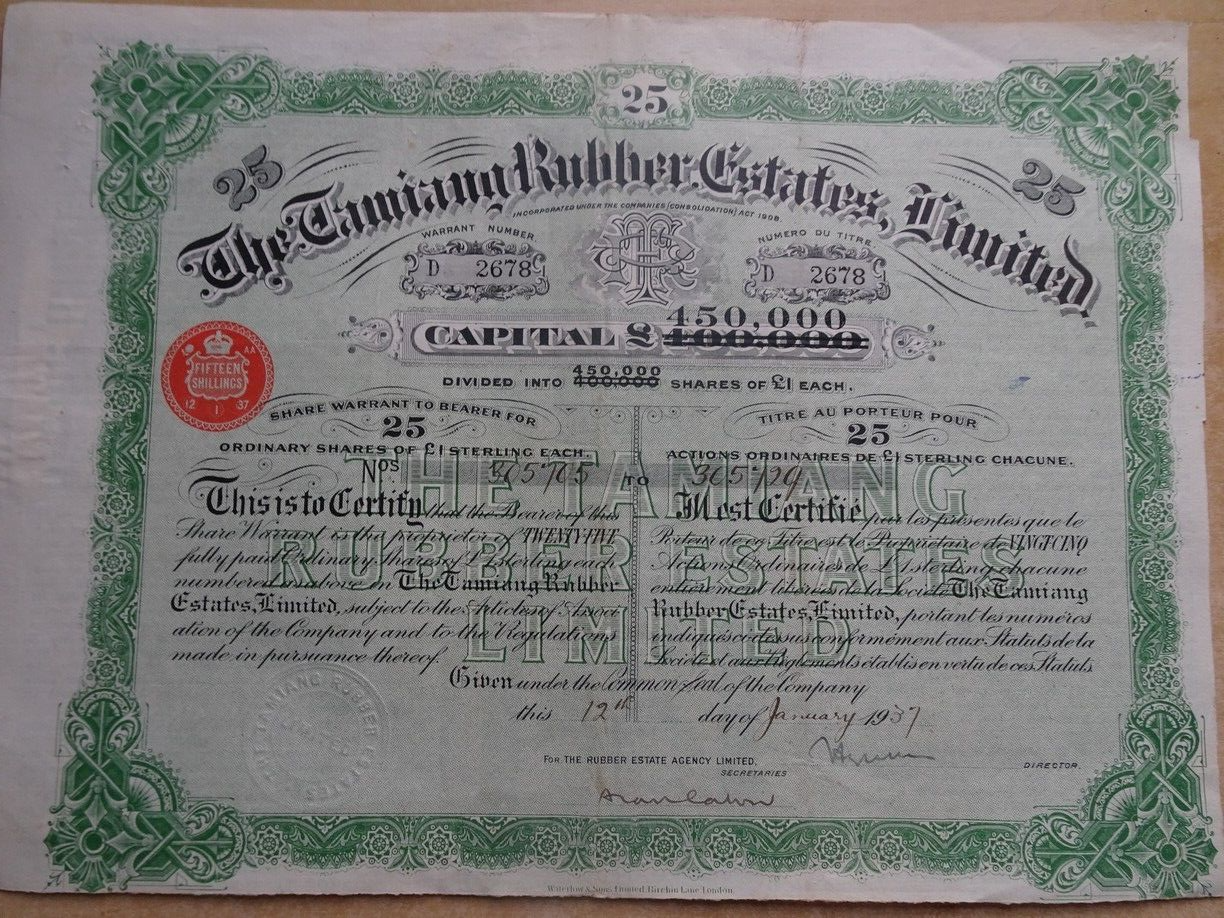 25
25
25
The Tamiang Rubber Estates, Limited.
INCORPORATED UNDER THE COMPANIES (CONSOLIDATION) ACT 1908.
WARRANT NUMBER
D 2678
NUMERO DU TITRE
D 2678
450,000
CAPITAL £ 400,000
450,000
DIVIDED INTO 400,000 SHARES OF £1 EACH.
AA
FIFTEEN
SHILLINGS
12 1 37
SHARE WARRANT TO BEARER FOR
25
ORDINARY SHARES OF £1 STERLING EACH.
TITRE AU PORTEUR POUR
25
ACTIONS ORDINAIRES DE £1 STERLING CHACUNE.
Nos 365705 TO 365729
THE TAMIANG
RUBBER ESTATES
LIMITED
This is to Certify that the Bearer of this
Share Warrant is the proprietor of TWENTY FIVE
fully paid Ordinary Shares of £1 Sterling each
numbered as above in The Tamiang Rubber
Estates, Limited, subject to the Articles of Associ-
ation of the Company and to the Regulations
made in pursuance thereof.
Il est Certifié par les présentes que le
Porteur de ce Titre est le Propriétaire de VINGT CINQ
Actions Ordinaires de £1 sterling chacune
entièrement libérées de la Société The Tamiang
Rubber Estates, Limited, portant les numéros
indiqués ci dessus conformément aux Statuts de la
Société et aux Règlements établis en vertu de ces Statuts
Given under the Common Seal of the Company
this 12th day of January 1937
THE TAMIANG RUBBER ESTATES
LIMITED
FOR THE RUBBER ESTATE AGENCY LIMITED,
SECRETARIES
DIRECTOR.
Waterlow & Sons, Limited, Birchin Lane, London.